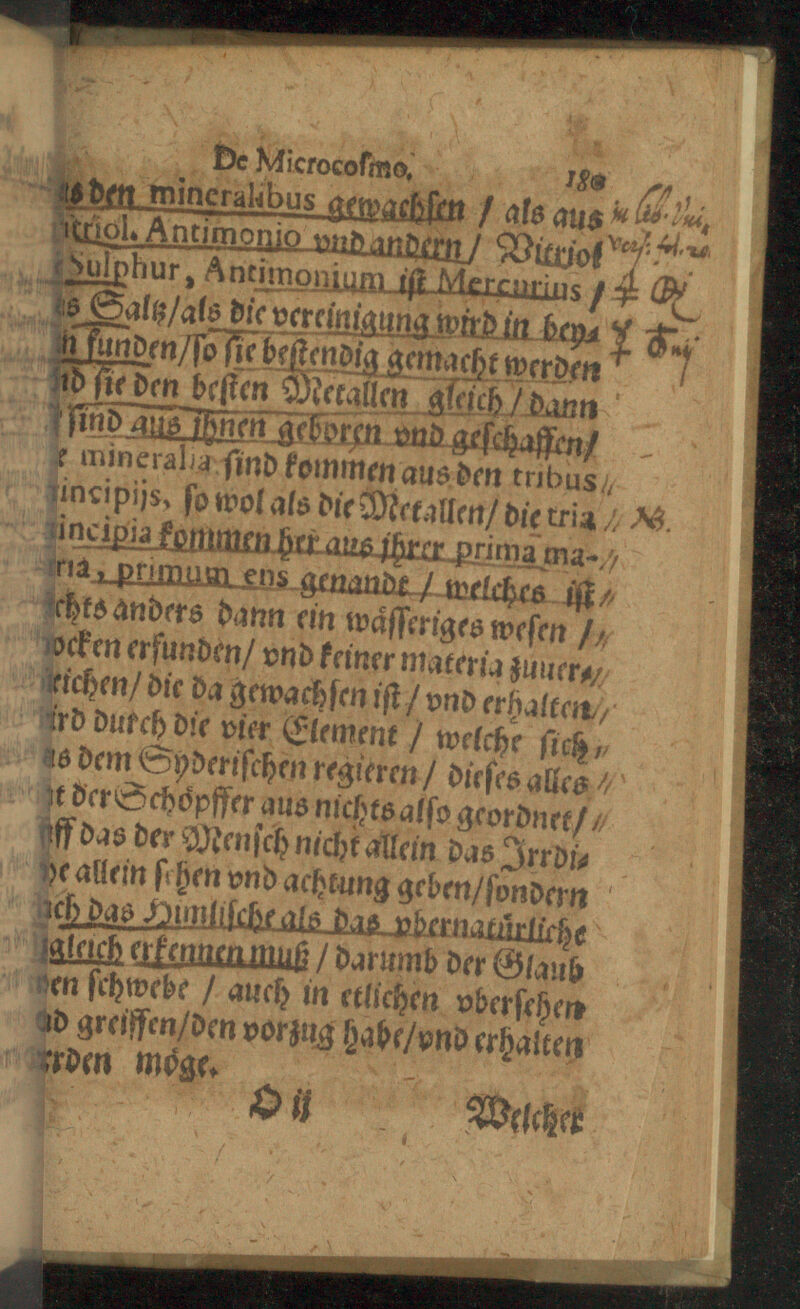 De Microcoſmo, 180
den mineralibus gewachſen / als aus
Antimonio vnd andern / Vitriol
Sulphur, Antimonium iſt Mercurius /
Saltz / als die vereinigung wird in bey⸗
funden / ſo ſie beſtendig gemacht werden
ſie den beſten Metallen gleich / dann
ſind aus jhnen geboren vnd geſchaffen /
mineralia ſind kommen aus den tribus
ſo wol als die Metallen / die tria NB.
kommen her aus jhrer prima ma-
primum ens genandt / welches iſt
anders dann ein wäſſeriges weſen /
erfunden / vnd keiner materia zuuer⸗
die da gewachſen iſt / vnd erhalten
durch die vier Element / welche ſich
dem Syderiſchen regieren / dieſes alles
der Schöpffer aus nichts alſo geordnet /
das der Menſch nicht allein das Jrrdi⸗
allein ſehen vnd achtung geben / ſondern
das Himliſche als das vbernatürliche
erkennen muß / darumb der Glaub
ſchwebe / auch in etlichen vberſehen
greiffen / den vorzug habe / vnd erhalten
möge.
O ij Welcher